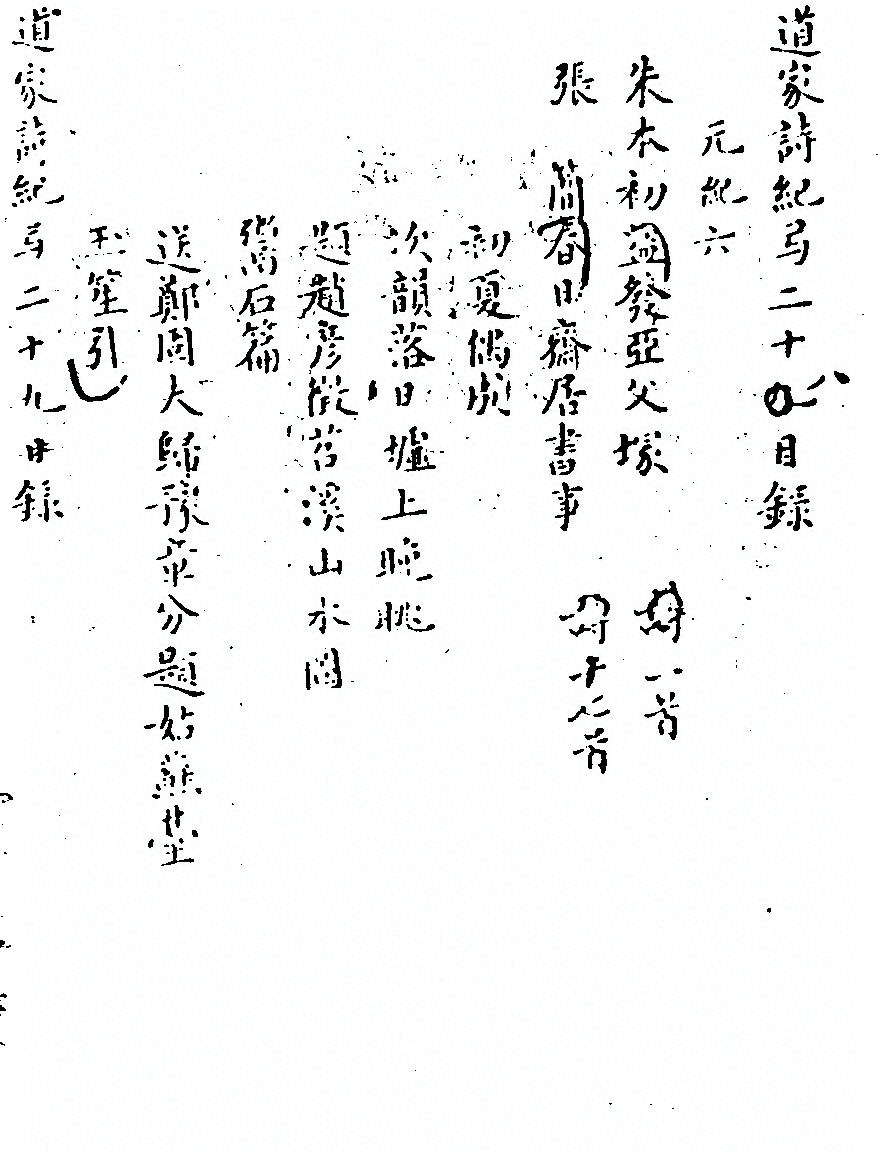 道家詩紀弓二十九目錄
元紀六
朱本初 盜發亞父塚 詩一首
張 簡 春日齋居書事 詩十七首
初夏偶成
次韻落日壚上晚眺
題趙彥徵苕溪山水圖
嵩石篇
送鄭同夫歸豫章分題姑蘇臺
玉笙引
道家詩紀弓二十九目錄